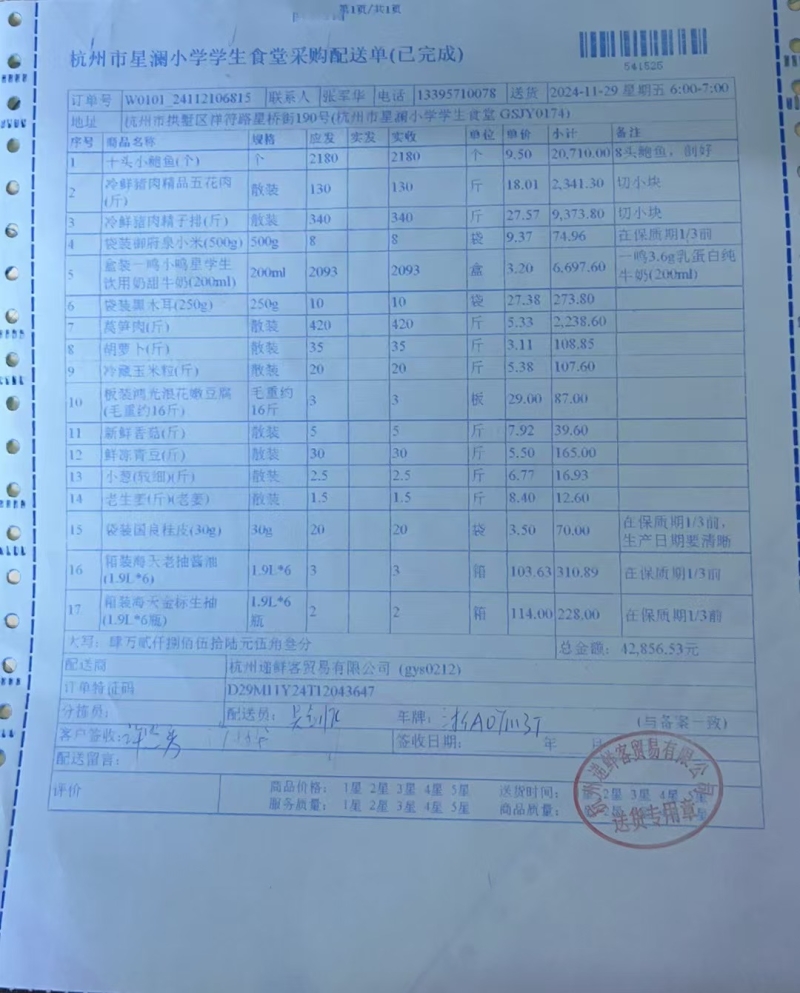 第1页/共1页
杭州市星澜小学学生食堂采购配送单(已完成)
541526
订单号 W0101_24112106815 联系人 张军华 电话 13395710078 送货 2024-11-29 星期五 6:00-7:00
地址 杭州市拱墅区祥符路星桥街190号(杭州市星澜小学学生食堂 GSJY0174)
序号 商品名称 规格 应发 实发 实收 单位 单价 小计 备注
1 十头小鲍鱼(个) 个 2180 2180 个 9.50 20,710.00 8头鲍鱼，剖好
2 冷鲜猪肉精品五花肉(斤) 散装 130 130 斤 18.01 2,341.30 切小块
3 冷鲜猪肉精子排(斤) 散装 340 340 斤 27.57 9,373.80 切小块
4 袋装御府泉小米(500g) 500g 8 8 袋 9.37 74.96 在保质期1/3前
5 盒装一鸣小鸣星学生饮用奶甜牛奶(200ml) 200ml 2093 2093 盒 3.20 6,697.60 一鸣3.6g乳蛋白纯牛奶(200ml)
6 袋装黑木耳(250g) 250g 10 10 袋 27.38 273.80
7 莴笋肉(斤) 散装 420 420 斤 5.33 2,238.60
8 胡萝卜(斤) 散装 35 35 斤 3.11 108.85
9 冷藏玉米粒(斤) 散装 20 20 斤 5.38 107.60
10 板装鸿光浪花嫩豆腐(毛重约16斤) 毛重约16斤 3 3 板 29.00 87.00
11 新鲜香菇(斤) 散装 5 5 斤 7.92 39.60
12 鲜冻青豆(斤) 散装 30 30 斤 5.50 165.00
13 小葱(较细)(斤) 散装 2.5 2.5 斤 6.77 16.93
14 老生姜(斤)(老姜) 散装 1.5 1.5 斤 8.40 12.60
15 袋装国良桂皮(30g) 30g 20 20 袋 3.50 70.00 在保质期1/3前，生产日期要清晰
16 箱装海天老抽酱油(1.9L*6) 1.9L*6 3 3 箱 103.63 310.89 在保质期1/3前
17 箱装海天金标生抽(1.9L*6瓶) 1.9L*6瓶 2 2 箱 114.00 228.00 在保质期1/3前
大写：肆万贰仟捌佰伍拾陆元伍角叁分 总金额：42,856.53元
配送商 杭州递鲜客贸易有限公司 (gys0212)
订单特征码 D29M11Y24T12043647
分拣员： 配送员： 车牌： (与备案一致)
客户签收： 签收日期： 年 月
配送留言：
评价 商品价格： 1星 2星 3星 4星 5星 送货时间： 2星 3星 4星 星
服务质量： 1星 2星 3星 4星 5星 商品质量：
杭州递鲜客贸易有限公司
送货专用章